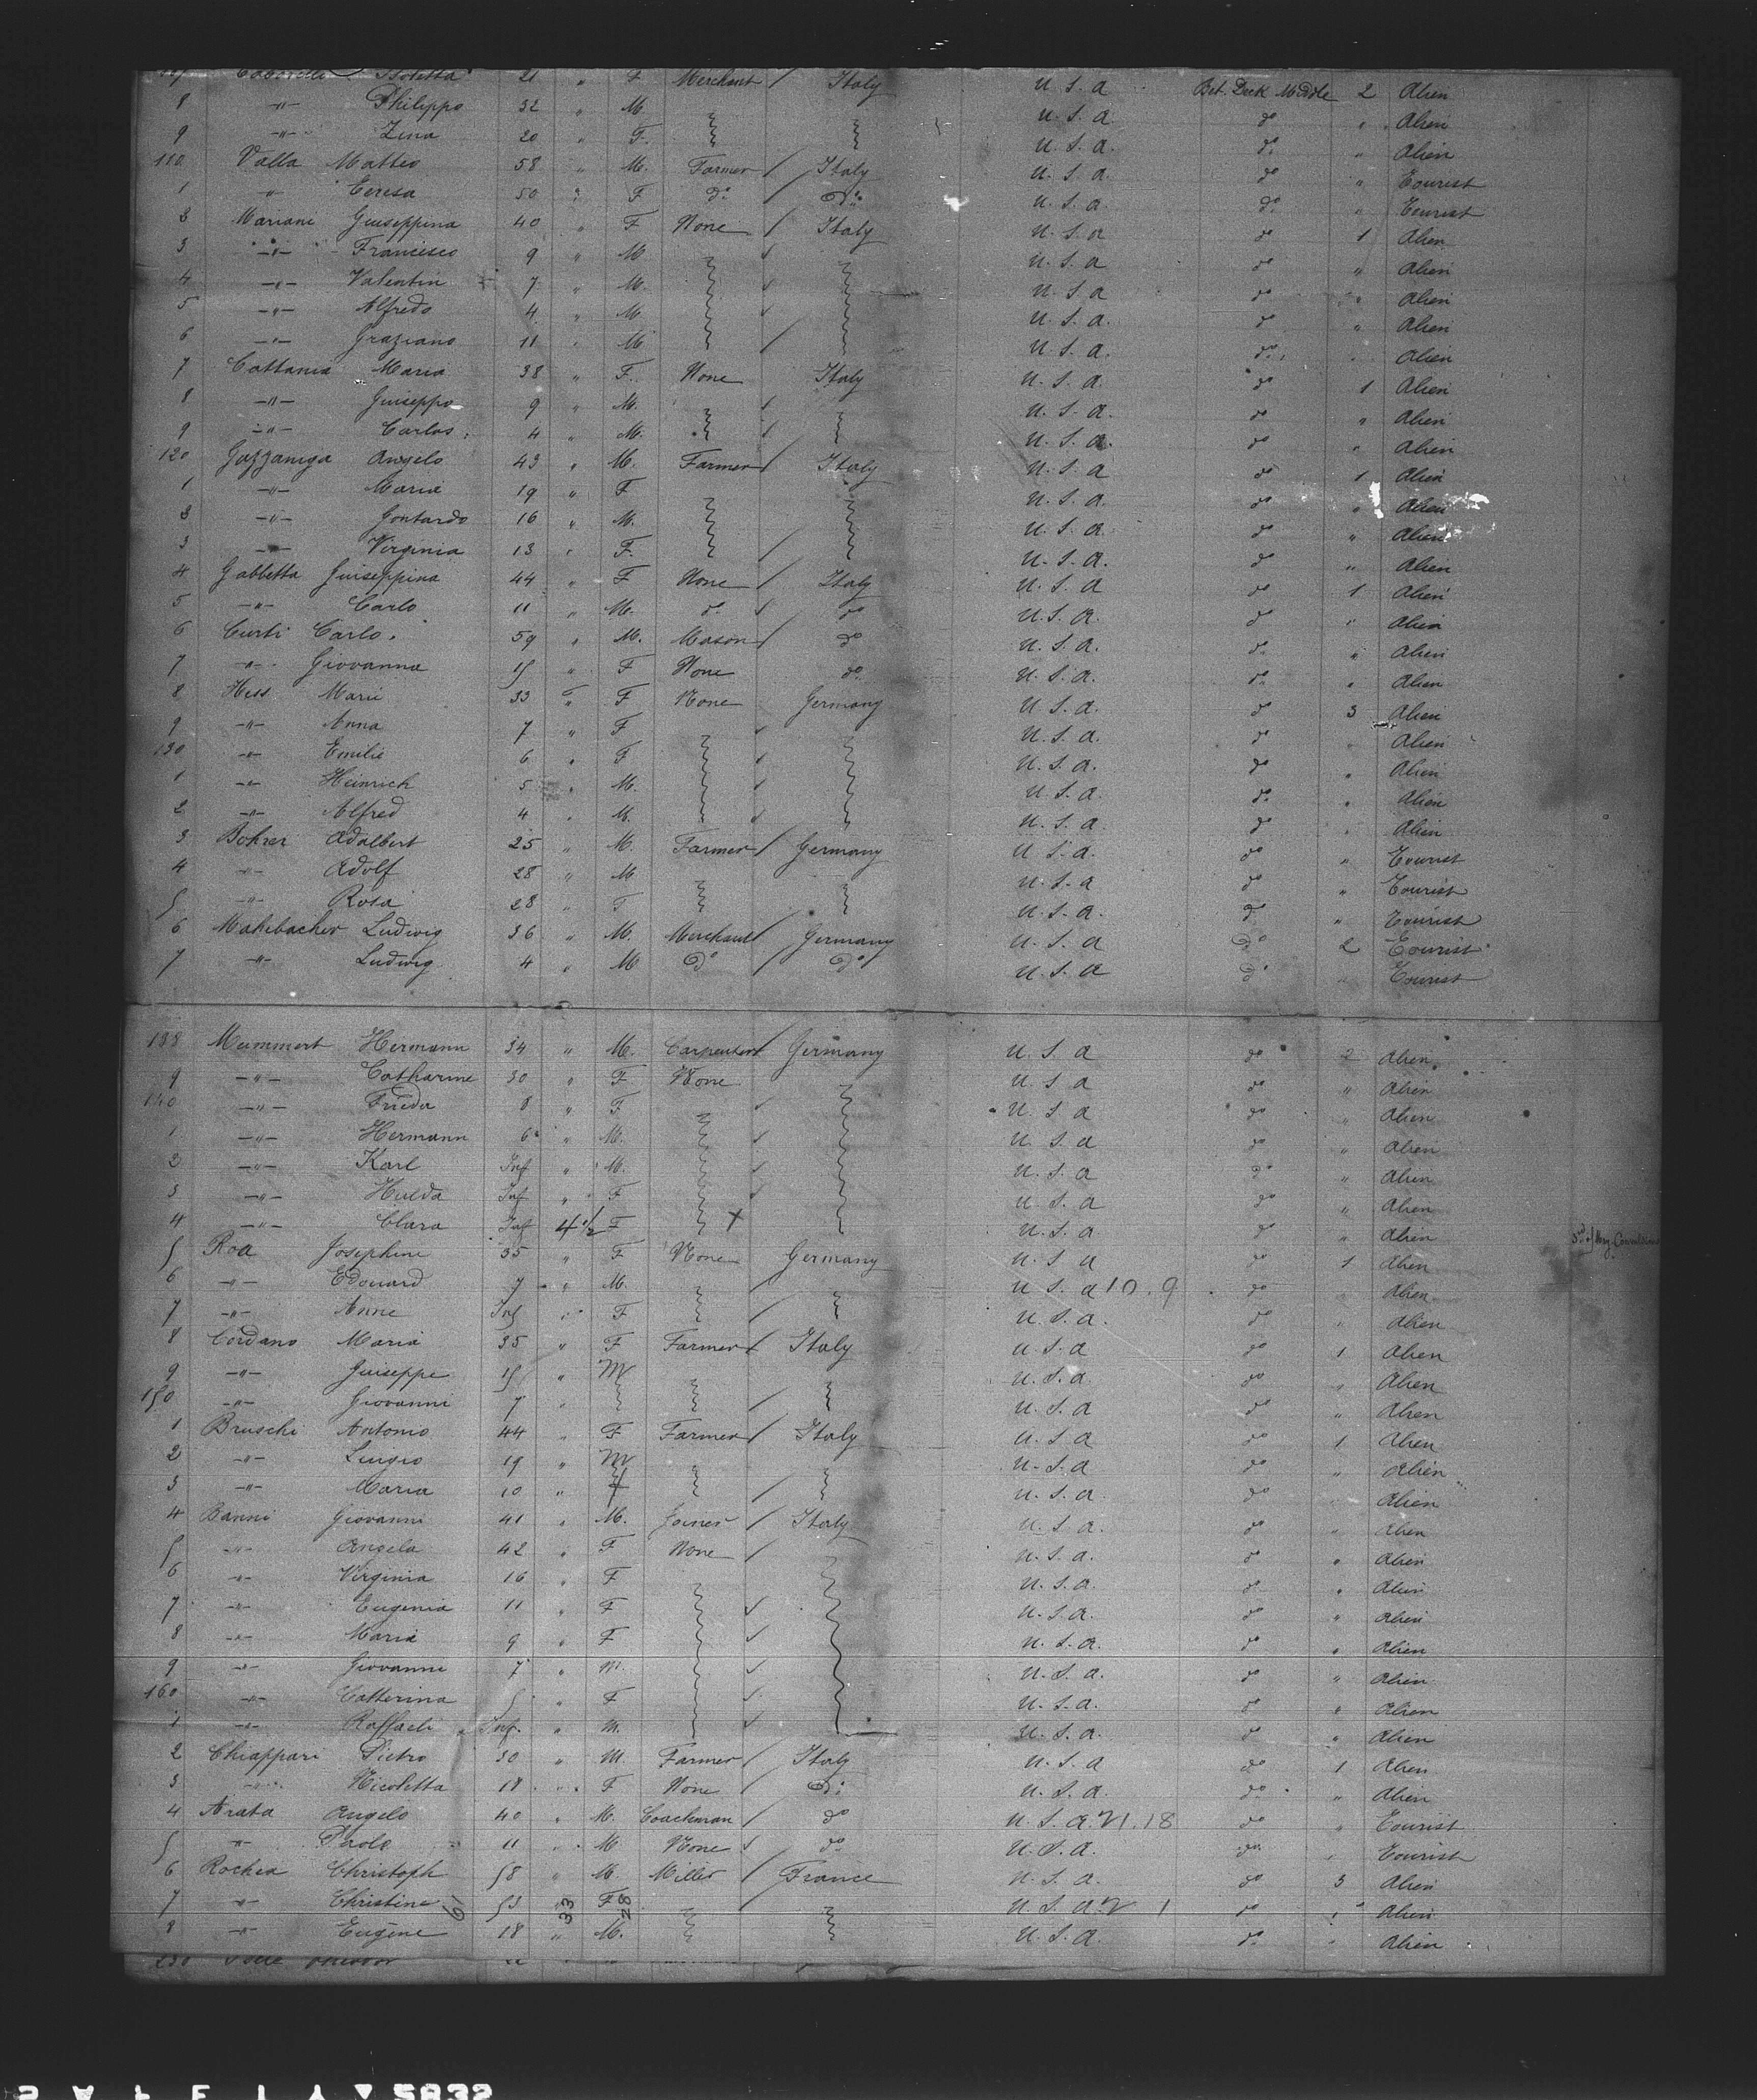 Isoletta 21 " F Merchant / Italy U.S.A Bet. Deck Middle 2 Alien
8 -"- Philippo 32 " M. U.S.A. do " Alien
9 -"- Zina 20 " F. U.S.A. do " Alien
110 Valla Matteo 58 " M. Farmer / Italy U.S.A. do " Tourist
1 " Teresa 50 " F do do U.S.A. do " Tourist
2 Mariani Giuseppina 40 " F None / Italy U.S.A do 1 Alien
3 -"- Francesco 9 " M U.S.A do " Alien
4 -"- Valentin 7 " M. U.S.A do " Alien
5 -"- Alfredo 4 " M U.S.A. do " Alien
6 -"- Graziano 11 " M U.S.A. do " Alien
7 Cattania Maria 38 " F. None Italy U.S.A. do 1 Alien
8 -"- Guiseppo 9 " M. U.S.A. do " Alien
9 -"- Carlos 4 " M. U.S.A. do " Alien
120 Gazzaniga Angelo 43 " M. Farmer / Italy U.S.A do 1 Alien
1 -"- Maria 19 " F U.S.A. do " Alien
2 -"- Gontardo 16 " M. U.S.A. do " Alien
3 -"- Virginia 13 " F. U.S.A. do " Alien
4 Gabbetta Guiseppina 44 " F None / Italy U.S.A do 1 Alien
5 -"- Carlo 11 " M. do do U.S.A. do " Alien
6 Curti Carlo. 59 " M. Mason / do U.S.A. do " Alien
7 -"- Giovanna 15 " F None do U.S.A. do " Alien
8 Hess Marie 33 " F None Germany U.S.A. do 3 Alien
9 -"- Anna 7 " F U.S.A. do " Alien
130 -"- Emilie 6 " F U.S.A. do " Alien
1 -"- Heinrich 5 " M. U.S.A. do " Alien
2 -"- Alfred 4 " M. U.S.A do " Alien
3 Bohrer Adalbert 25 " M. Farmer / Germany U.S.A. do " Tourist
4 -"- Adolf 28 " M U.S.A do " Tourist
5 -"- Rosa 28 " F U.S.A. do " Tourist
6 Mahlbacher Ludwig 36 " M. Merchant / Germany U.S.A do 2 Tourist
7 -"- Ludwig 4 " M do / do U.S.A do " Tourist
138 Mummert Hermann 34 " M. Carpenter / Germany U.S.A do 2 Alien
9 -"- Catharine 30 " F None U.S.A do " Alien
140 -"- Frieda 8 " F U.S.A do " Alien
1 -"- Hermann 6 " M. U.S.A do " Alien
2 -"- Karl Inf " M. U.S.A do " Alien
3 -"- Hulda Inf " F U.S.A do " Alien
4 -"- Clara Inf 4 1/2 F X U.S.A. do " Alien
5 Roa Josephine 35 " F None Germany U.S.A do 1 Alien
6 -"- Edouard 7 " M. U.S.A 10.9 do " Alien
7 -"- Anne Inf " F U.S.A. do " Alien
8 Cordano Maria 35 " F Farmer / Italy U.S.A do 1 Alien
9 -"- Guiseppe 15 " M U.S.A do " Alien
150 -"- Giovanni 7 " U.S.A do " Alien
1 Bruschi Antonio 44 " F Farmer / Italy U.S.A do 1 Alien
2 -"- Luigio 19 " M U.S.A do " Alien
3 -"- Maria 10 " F U.S.A do " Alien
4 Banni Giovanni 41 " M. Joiner / Italy U.S.A. do " Alien
5 -"- Angela 42 " F None / U.S.A. do " Alien
6 -"- Virginia 16 " F U.S.A. do " Alien
7 -"- Eugenia 11 " F U.S.A. do " Alien
8 -"- Maria 9 " F U.S.A. do " Alien
9 -"- Giovanni 7 " M. U.S.A. do " Alien
160 -"- Catterina 5 " F U.S.A. do " Alien
1 -"- Raffaeli Inf. " M. U.S.A. do " Alien
2 Chiappari Pietro 30 " M. Farmer / Italy U.S.A do 1 Alien
3 -"- Nicoletta 18 " F None do U.S.A. do " Alien
4 Arata Angelo 40 " M. Coachman / do U.S.A. 21.18 do " Tourist
5 -"- Paolo 11 " M None do U.S.A. do " Tourist
6 Rochea Christoph 58 " M. Miller / France U.S.A. do 3 Alien
7 -"- Christine 61 53 33 F 28 U.S.A. 2 1 do " Alien
8 -"- Eugène 18 " M. U.S.A. do " Alien
5832